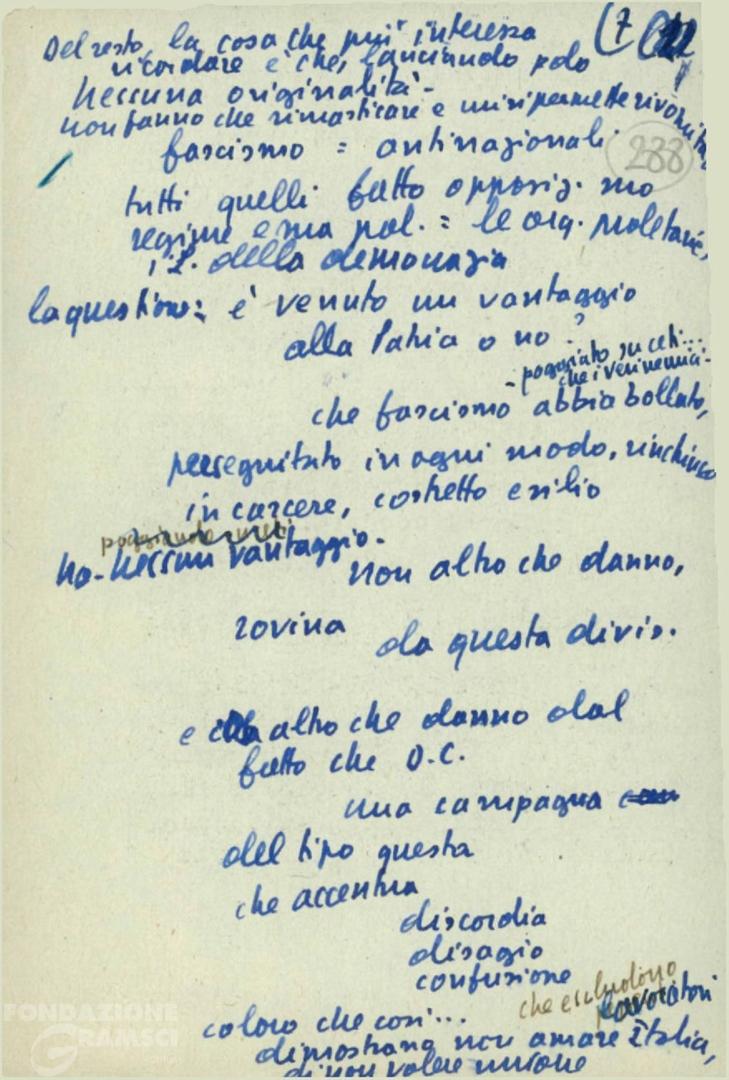 (7
Del resto, la cosa che più interessa
ricordare è che, lanciando
nessuna originalità -
non fanno che rimasticare e
288
fascismo = antinazionali
tutti quelli fatto opposiz. suo
regime e sua pol. = le org. proletarie,
i L. della democrazia
la questione: è venuto un vantaggio
alla Patria o no?
- poggiato su ceti...
che i veri nemici -
che fascismo abbia bollato,
perseguitato in ogni modo, rinchiuso
in carcere, costretto esilio
poggiando
No - nessun vantaggio -
non altro che danno,
rovina da questa divis.
e altro che danno dal
fatto che D.C.
una campagna
del tipo questa
che accentua
discordia
disagio
confusione
che escludono
lavoratori
coloro che così...
dimostrano non amare Italia,
di non volere unione
FONDAZIONE
GRAMSCI